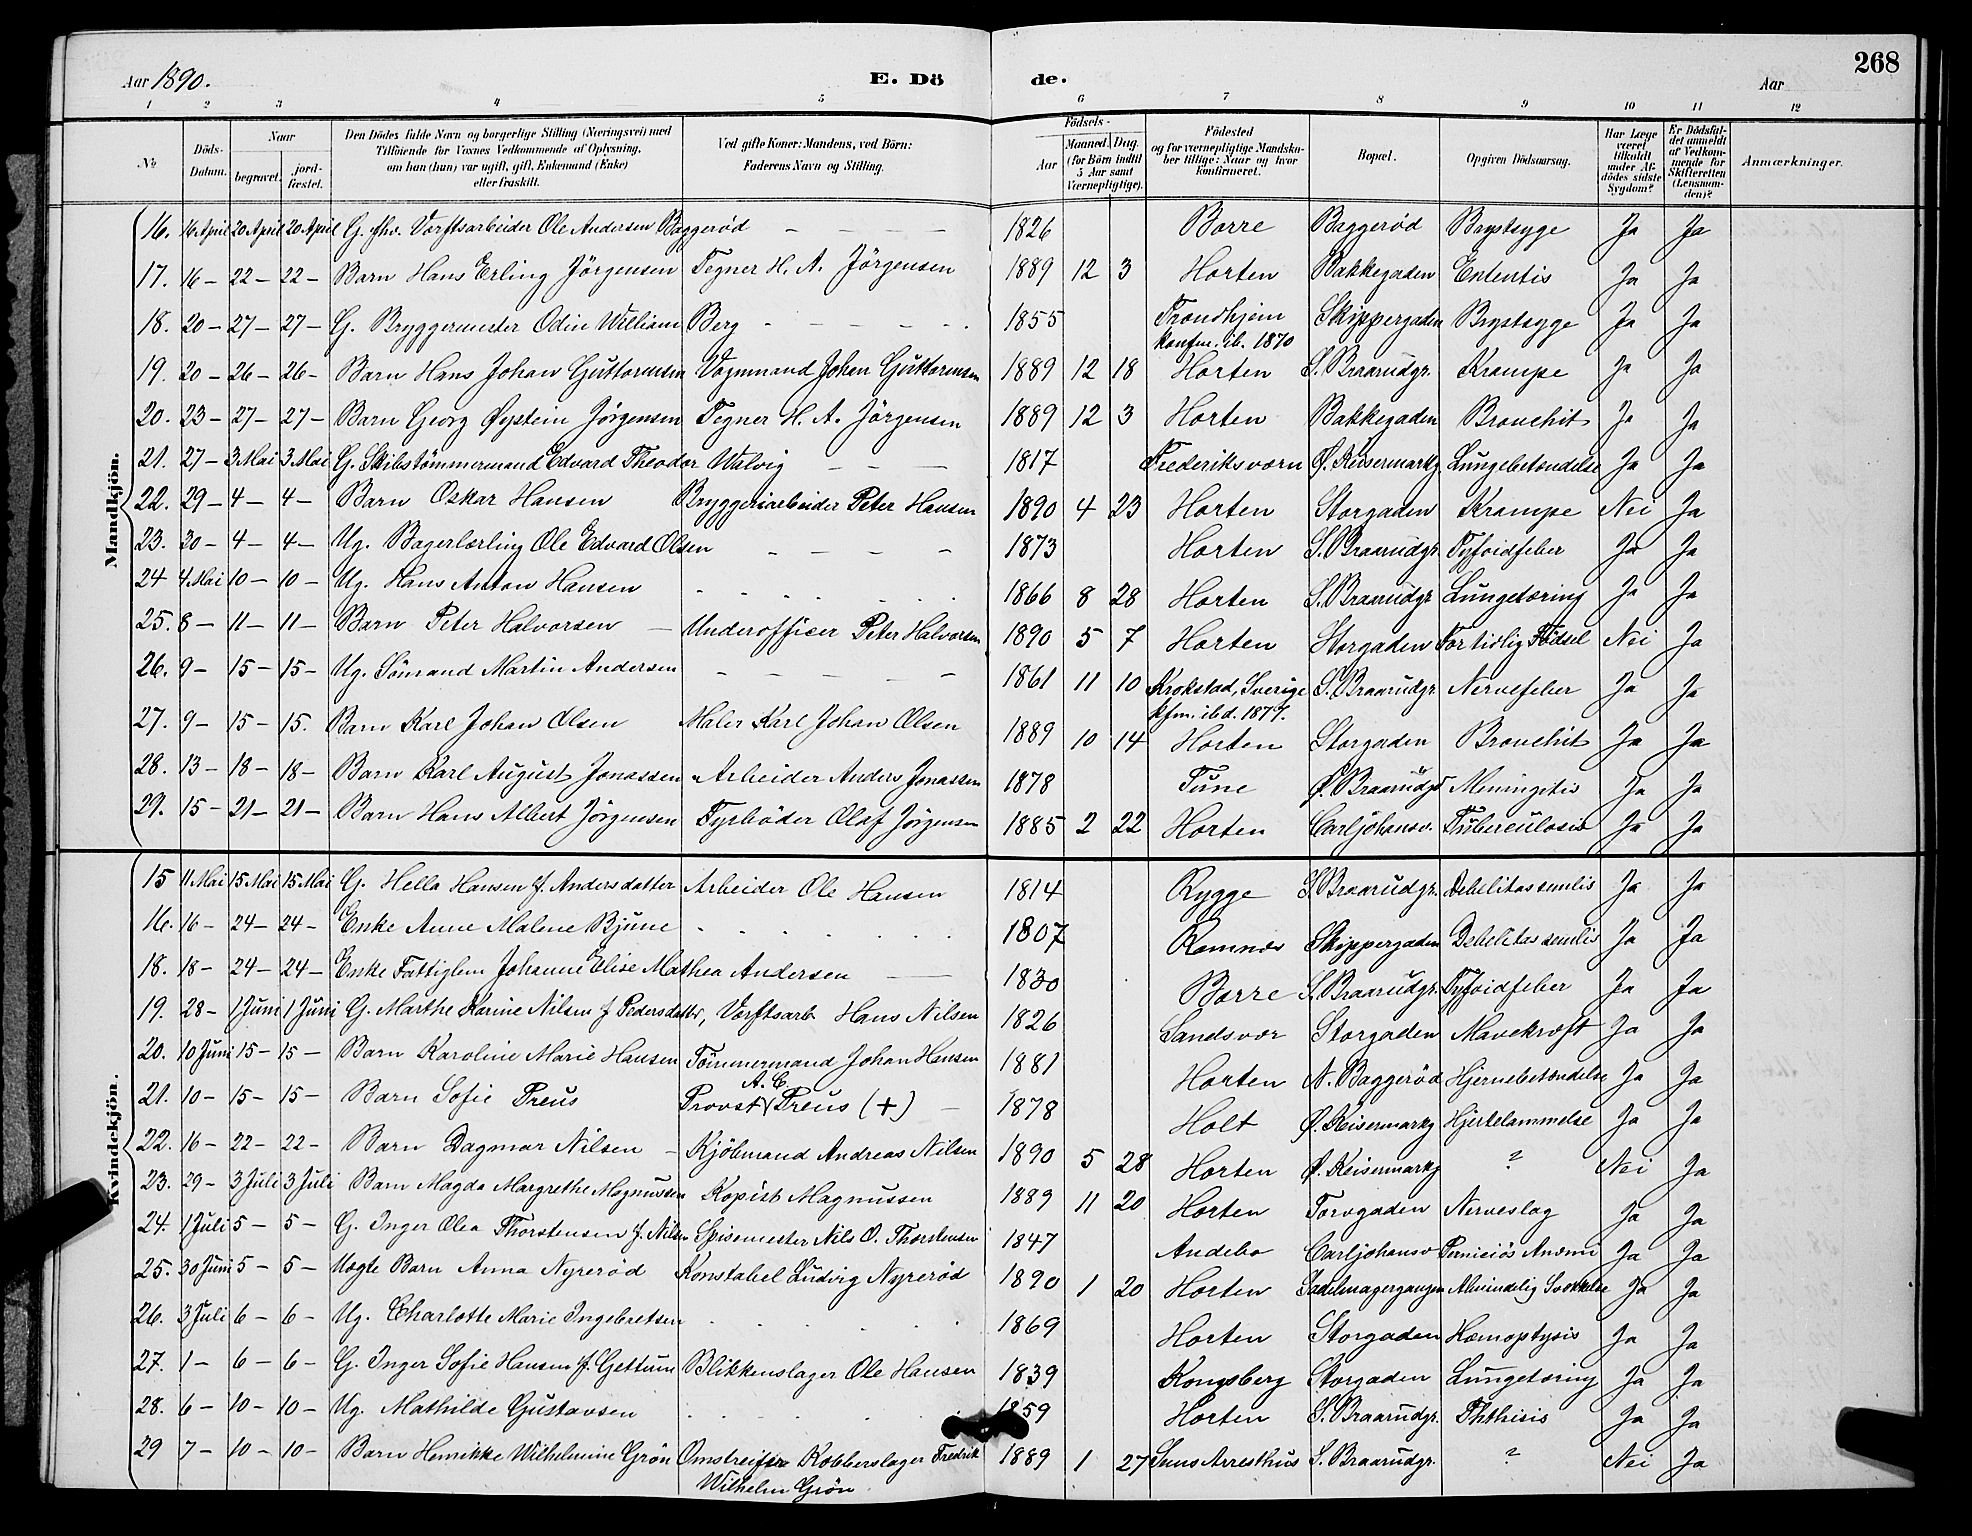 268
Aar 1890. E. Dö de. Aar
1 2 3 4 5 6 7 8 9 10 11 12
№ Döds-Datum. Naar begravet. jordfæstet. Den Dödes fulde Navn og borgerlige Stilling (Næringsvei) med Tilföiende for Voxnes Vedkommende af Oplysning, om han (hun) var ugift, gift, Enkemand (Enke) eller fraskilt. Ved gifte Koner: Mandens, ved Börn: Faderens Navn og Stilling. Födsels- Aar Maaned. Dag. (for Börn indtil 5 Aar samt Værnepligtige). Födested og for værnepligtige Mandskaber tillige: Naar og hvor konfirmeret. Bopæl. Opgiven Dödsaarsag. Har Læge været tilkaldt under Afdödes sidste Sygdom? Er Dödsfaldet anmeldt af Vedkommende for Skifteretten (Lensmanden)? Anmærkninger.
Mandkjön.
16. 16 April 20 April 20 April G. fhv. Værftsarbeider Ole Andersen Baggerød — — — — 1826 Borre Baggerød Brystsyge Ja Ja
17. 16 — 22 — 22 — Barn Hans Erling Jörgensen Tegner H. A. Jörgensen 1889 12 3 Horten Bakkegaden Ententis Ja Ja
18. 20 — 27 — 27 — G. Bryggermester Odin William Berg — — — 1855 Trondhjem Skippergaden Brystsyge Ja Ja
konfm. ib. 1870
19. 20 — 26 — 26 — Barn Hans Johan Guttormsen Vognmand Johan Guttormsen 1889 12 18 Horten S. Braarudgr. Krampe Ja Ja
20. 23 — 27 — 27 — Barn Georg Øystein Jørgensen Tegner H. A. Jörgensen 1889 12 3 Horten Bakkegaden Bronchit Ja Ja
21. 27 — 3 Mai 3 Mai G. Skibstömmermand Edvard Theodor Walvig — — — 1817 Frederiksværn Ø. Keisermarkg Lungebetændelse Ja Ja
22. 29 — 4 — 4 — Barn Oskar Hansen Bryggeriarbeider Peter Hansen 1890 4 23 Horten Storgaden Krampe Nei Ja
23. 30 — 4 — 4 — Ug. Bagerlærling Ole Edvard Olsen — — — — 1873 Horten S. Braarudgr. Tyfoidfeber Ja Ja
24 4 Mai 10 — 10 — Ug. Hans Anton Hansen 1866 8 28 Horten S. Braarudgr Lungetæring Ja Ja
25. 8 — 11 — 11 — Barn Peter Halvorsen — Underofficer Peter Halvorsen 1890 5 7 Horten Storgaden For tidlig Födsel Nei Ja
26. 9 — 15 — 15 — Ug. Sömand Martin Andersen — — — — 1861 11 10 Krokstad, Sverige S. Braarudgr. Nervefeber Ja Ja
kfm. ibd. 1877.
27. 9 — 15 — 15. Barn Karl Johan Olsen Maler Karl Johan Olsen 1889 10 14 Horten Storgaden Bronchit Ja Ja
28. 13 — 18 — 18 — Barn Karl August Jonassen Arbeider Anders Jonassen 1878 Tune Ø. Braarudgr Meningitis Ja Ja
29. 15 — 21 — 21 — Barn Hans Albert Jörgensen Fyrböder Olaf Jörgensen 1885 2 22 Horten Carljohansv. Tuberculosis Ja Ja
Kvindekjön.
15 11 Mai 15 Mai 15 Mai G. Hella Hansen f. Andersdatter Arbeider Ole Hansen 1814 Rygge S. Braarudgr. Debelitas senilis Ja Ja
16. 16 — 24 — 24 — Enke Anne Malene Bjune 1807 Ramnæs Skippergaden Debelitas senilis Ja Ja
18. 18 — 24 — 24 — Enke Fattiglem Johanne Elise Mathea Andersen — 1830 Borre S. Braarudgr. Tyfoidfeber Ja Ja
19. 28 — 1 Juni 1 Juni G. Marthe Karine Nilsen f Pedersdatter, Værftsarb Hans Nilsen 1826 Sandsvær Storgaden Mavekræft Ja Ja
20. 10 Juni 15 — 15 — Barn Karoline Marie Hansen Tömmermand Johan Hansen 1881 Horten N. Baggerød Hjernebetændelse Ja Ja
21. 10 — 15 — 15 — Barn Sofie Preus Provst A. C. Preus (+) — 1878 Holt Ø. Keisermarkg Hjertelammelse Ja Ja
22. 16 — 22 — 22 — Barn Dagmar Nilsen — Kjöbmand Andreas Nilsen 1890 5 28 Horten Ø. Keisermarkg ? Nei Ja
23. 29 — 3 Juli 3 Juli Barn Magda Margrethe Magnussen Kopist Magnussen 1889 11 20 Horten Torvgaden Nerveslag Ja Ja
24. 1 Juli 5 — 5 — G. Inger Olea Thorstensen f. Nilsen Spisemester Nils O. Thorstensen 1847 Andebo Carljohansv Perniciös Anæmi Ja Ja
25. 30 Juni 5 — 5 — Uægte Barn Anna Nyrerød Konstabel Ludvig Nyrerød 1890 1 20 Horten Sadelmagergangen Almindelig Svækkelse Ja Ja
26. 3 Juli 6 — 6 — Ug. Charlotte Marie Ingebretsen 1869 Horten Storgaden Hæmoptysis Ja Ja
27. 1 — 6 — 6 — G. Inger Sofie Hansen f. Gettum Blikkenslager Ole Hansen 1839 Kongsberg Storgaden Lungetæring Ja Ja
28. 6 — 10 — 10 — Ug. Mathilde Gustavsen 1859 Horten S. Braarudgr. Phthisis Ja Ja
29 7 — 10 — 10 — Barn Henrikke Wilhelmine Grön Omstreifer Kobberslager Fredrik 1889 1 27 Arresthus S. Braarudgr. ? Nei Ja
Wilhelm Grön